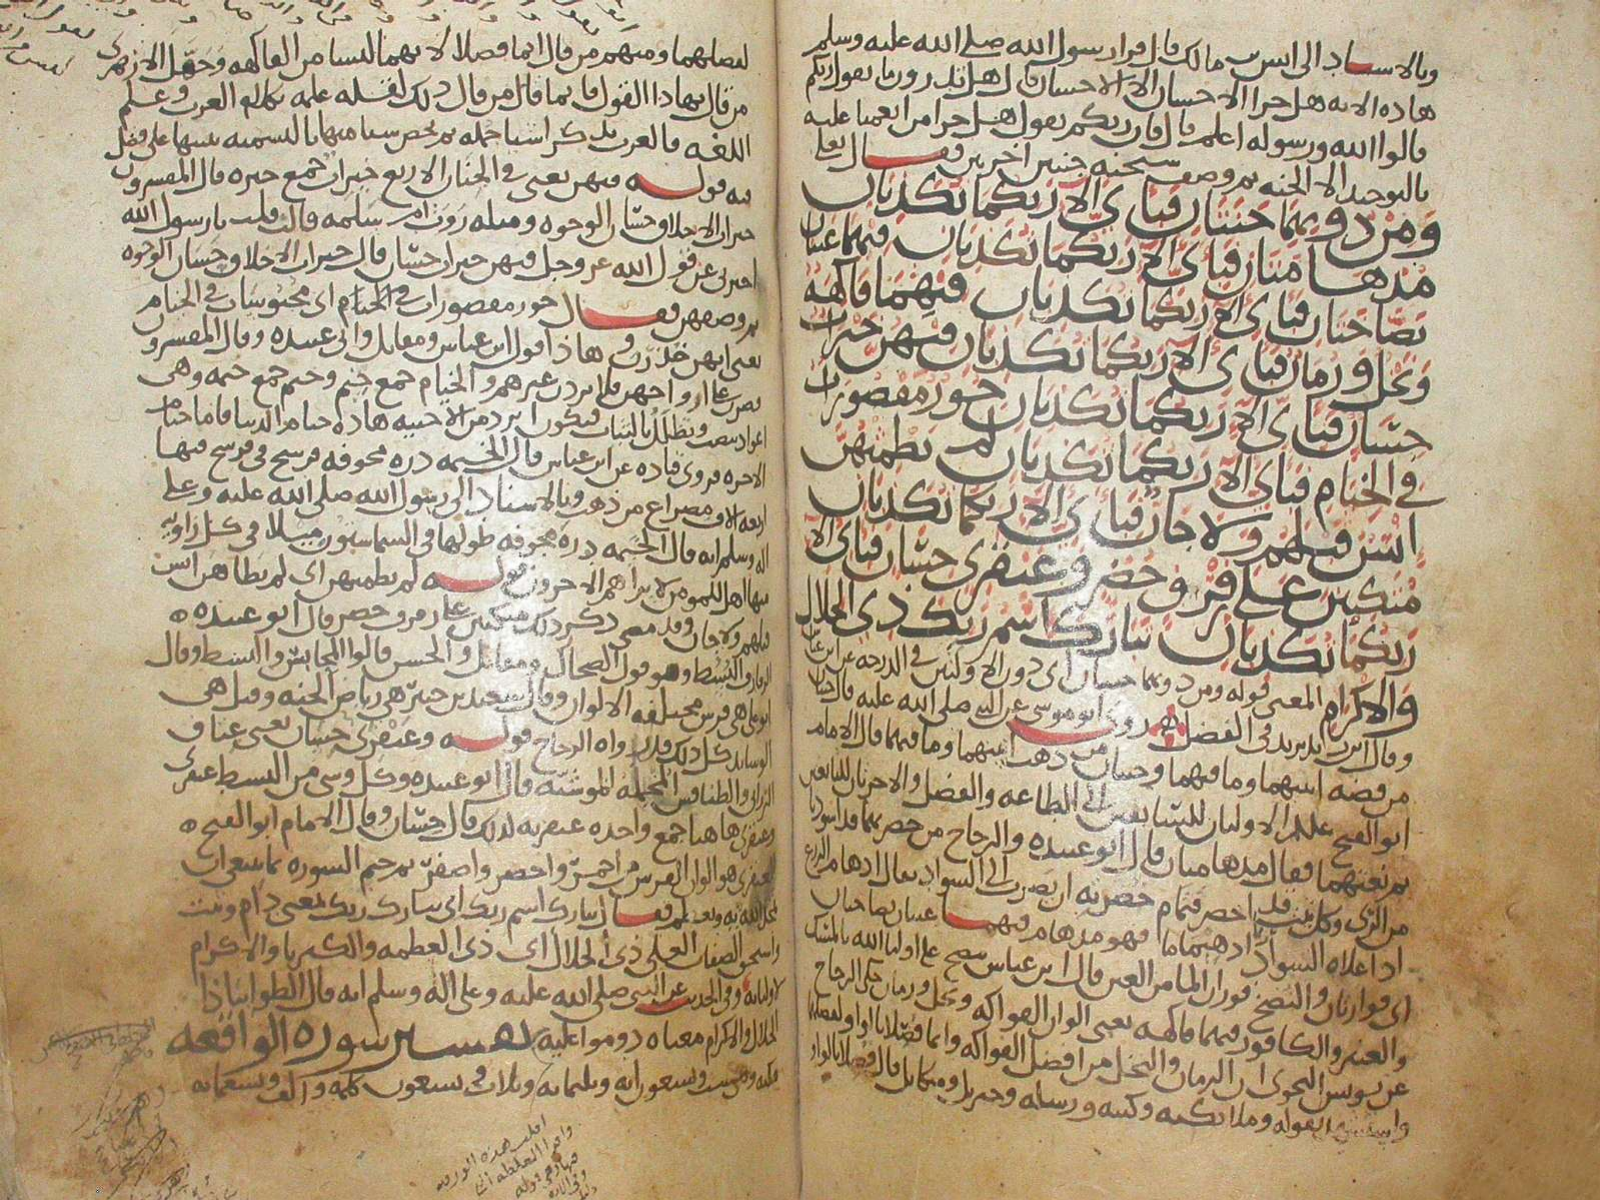 وبالاسناد الى انس بن مالك قال قرا رسول الله صلى الله عليه وسلم
هاذه الايه هل جزا الاحسان الا الاحسان قال هل تدرون ما يقول ربكم
قالوا الله ورسوله اعلم قال فان ربكم يقول هل جزا من انعمنا عليه
بالتوحيد الا الجنه ثم وصف سبحنه جنتين اخريين فقال تعالى
ومن دونهما جنتان فباى الا ربكما تكذبان
مدهامتان فباى الا ربكما تكذبان فيهما عينان
نضاختان فباى الا ربكما تكذبان فيهما فاكهة
ونخل ورمان فباى الا ربكما تكذبان فيهن خيرات
حسان فباى الا ربكما تكذبان حور مقصورات
في الخيام فباى الا ربكما تكذبان لم يطمثهن
انس قبلهم ولا جان فباى الا ربكما تكذبان
متكئين على رفرف خضر وعبقرى حسان فباى الا
ربكما تكذبان تبارك اسم ربك ذى الجلال
والاكرام المعنى قوله ومن دونهما جنتان اى دون الاولتين في الدرجه عن ابن عباس
وقال ابن زيد يريد في الفضل روى ابو موسى عن النبى صلى الله عليه قال جنتان
من فضه ابنيتهما وما فيهما وجنتان من ذهب ابنيتهما وما فيهما قال الامام
ابو الفتح الاوليان للسابقين الى الطاعه والفضل والاخريان للتابعين
ثم نعتهما فقال مدهامتان قال ابو عبيده والزجاج من خضرتهما قد اسودتا
من الرى وكل نبت اخضر فتمام خضرته ان يضرب الى السواد يقال ادهام الزرع
اذا علاه السواد ادهيماما فهو مدهام فيهما عينان نضاختان
اى فوارتان والنضخ فوران الما من العين قال ابن عباس تنضخ على اوليا الله بالمسك
والعنبر والكافور فيهما فاكهه يعنى الوان الفواكه ونخل ورمان حكى الزجاج
عن يونس النحوى ان الرمان والنخل من افضل الفواكه وانما فصلا بالواو لفضلهما
واستشهد بقوله وملائكته وكتبه ورسله وجبريل وميكايل قال فصلا بالواو
لفضلهما ومنهم من قال انما فصلا لانهما ليسا من الفاكهه الازهرى
من قال بهاذا القول قايما قال من قال ذلك لقله علمه بكلام العرب وعلم
اللغه فالعرب تذكر اشيا جمله ثم تخص شيا منها بالتسميه تنبيها على فضل
فيه قوله فيهن يعنى في الجنان الاربع خيرات جمع خيره قال المفسرون
خيرات الاخلاق حسان الوجوه ومثله روت ام سلمه قالت قلت يا رسول الله
اخبرنى عن قول الله عز وجل فيهن خيرات حسان قال خيرات الاخلاق حسان الوجوه
ثم وصفهن فقال حور مقصورات في الخيام اى محبوسات في الخيام
يعنى انهن خدرن وهاذا قول ابن عباس ومقاتل وابى عبيده وقال المفسرون
قصرن على ازواجهن فلا يردن غيرهم والخيام جمع خيم وخيم جمع خيمه وهى
اعواد تنصب وتظلل بالثياب فتكون ابرد من الاخبيه هاذه خيام الدنيا فاما خيام
الاخره فروى قتاده عن ابن عباس قال الخيمه دره مجوفه فرسخ في فرسخ فيها
اربعه الاف مصراع من ذهب وبالاسناد الى رسول الله صلى الله عليه وعلى
اله وسلم انه قال الخيمه دره مجوفه طولها في السما ستون ميلا في كل زاويه
منها اهل للمومن لا يراهم الاخرون قوله لم يطمثهن اى لم يطاهن انس
قبلهم ولا جان وقد مضى ذكر ذلك متكئين على رفرف خضر قال ابو عبيده
الرفارف البسط وهو قول الضحاك ومقاتل والحسن قالوا المحابس والبسط وقال
ابو على هى فرش مختلفه الالوان وقال سعيد بن جبير هى رياض الجنه وقيل هى
الوسايد كل ذلك قد رواه الزجاج قوله وعبقرى حسان يعنى عتاق
الزرابى والطنافس المخمله الموشيه قال ابو عبيده وكل وشى من البسط عبقرى
وعبقرى هاهنا جمع واحده عبقريه لذلك قال حسان وقال الامام ابو الفتح
العبقرى هو الوان الفرش من احمر واخضر واصفر ثم ختم السوره بما ينبغى ان
فقال تبارك اسم ربك اى تبارك ربك بمعنى دام وثبت
واستحق الصفات العلى ذى الجلال اى ذى العظمه والكبريا والاكرام
لاوليائه وفى الحديث عن النبى صلى الله عليه وعلى اله وسلم انه قال الظوا بياذا
الجلال والاكرام معناه دوموا عليه تفسير سورة الواقعة
مكيه وهى ست وتسعون ايه وثلثمايه وثلاث وسبعون كلمه والف وتسعمايه